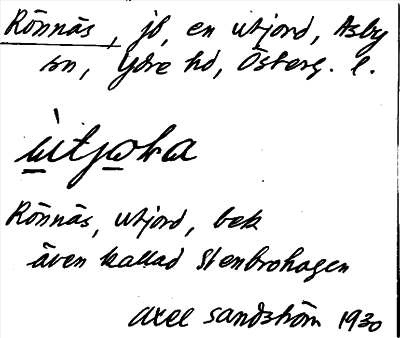 Rönnäs, jb, en utjord, Asby
sn, Ydre hd, Österg. l.
ùtjoka
Rönnäs, utjord, bek
även kallad Stenbrohagen
Axel Sandström 1930